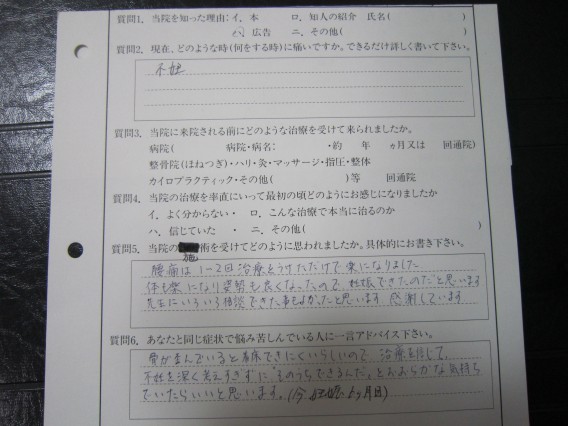 質問1. 当院を知った理由:イ. 本　ロ. 知人の紹介　氏名(　　)
ハ. 広告　ニ. その他(　　)
質問2. 現在、どのような時(何をする時)に痛いですか。できるだけ詳しく書いて下さい。
不妊
質問3. 当院に来院される前にどのような治療を受けて来られましたか。
病院(　　病院・病名:　　・約　年　ヵ月又は　回通院)
整骨院(ほねつぎ)・ハリ・灸・マッサージ・指圧・整体
カイロプラクティック・その他(　　)等　　回通院
質問4. 当院の治療を率直にいって最初の頃どのようにお感じになりましたか
イ. よく分からない・　ロ. こんな治療で本当に治るのか
ハ. 信じていた　・　ニ. その他(
質問5. 当院の施術を受けてどのように思われましたか。具体的にお書き下さい。
腰痛は1~2回治療をうけただけで楽になりました
体も楽になり姿勢も良くなったので、妊娠できたのだと思います
先生にいろいろ相談できた事もよかったと思います 感謝しています
質問6. あなたと同じ症状で悩み苦しんでいる人に一言アドバイス下さい。
骨が歪んでいると着床できにくいらしいので、治療を信じて、
不妊を深く考えすぎずに"そのうちできるんだ"とおおらかな気持ち
でいたらいいと思います。(今 妊娠6ヶ月目)